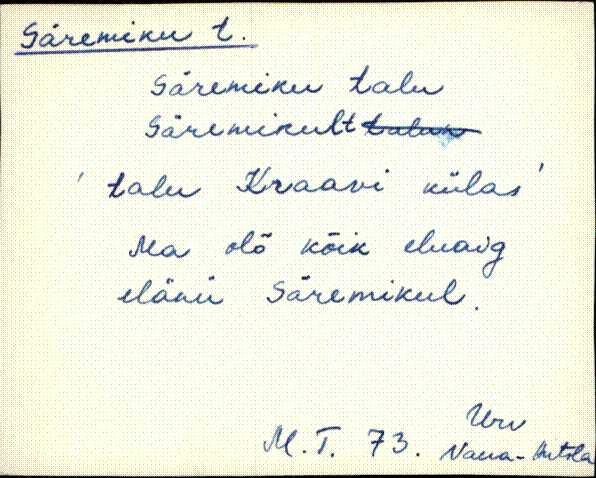 Säremiku t.
Säremiku talu
Säremikult talun
' talu Kraavi külas '
Ma olõ kõik eluaig
elänü Säremikul.
Urv
M. T. 73. Vana-Antsla